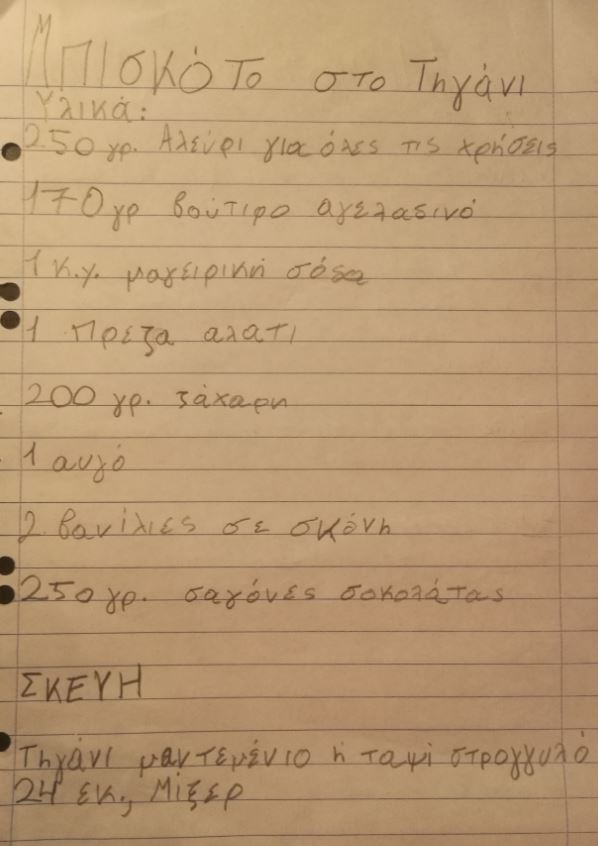 Μπισκότο στο Τηγάνι
Υλικά:
250 γρ. Αλεύρι για όλες τις χρήσεις
170 γρ βούτιρο αγελαδινό
1 κ.γ. μαγειρική σόδα
1 Πρέζα αλατι
200 γρ. ζάχαρη
1 αυγό
2 βανίλιες σε σκόνη
250 γρ. σαγόνες σοκολάτας
ΣΚΕΥΗ
Τηγάνι μαντεμένιο ή ταψί στρογγυλό
24 εκ., Μίξερ